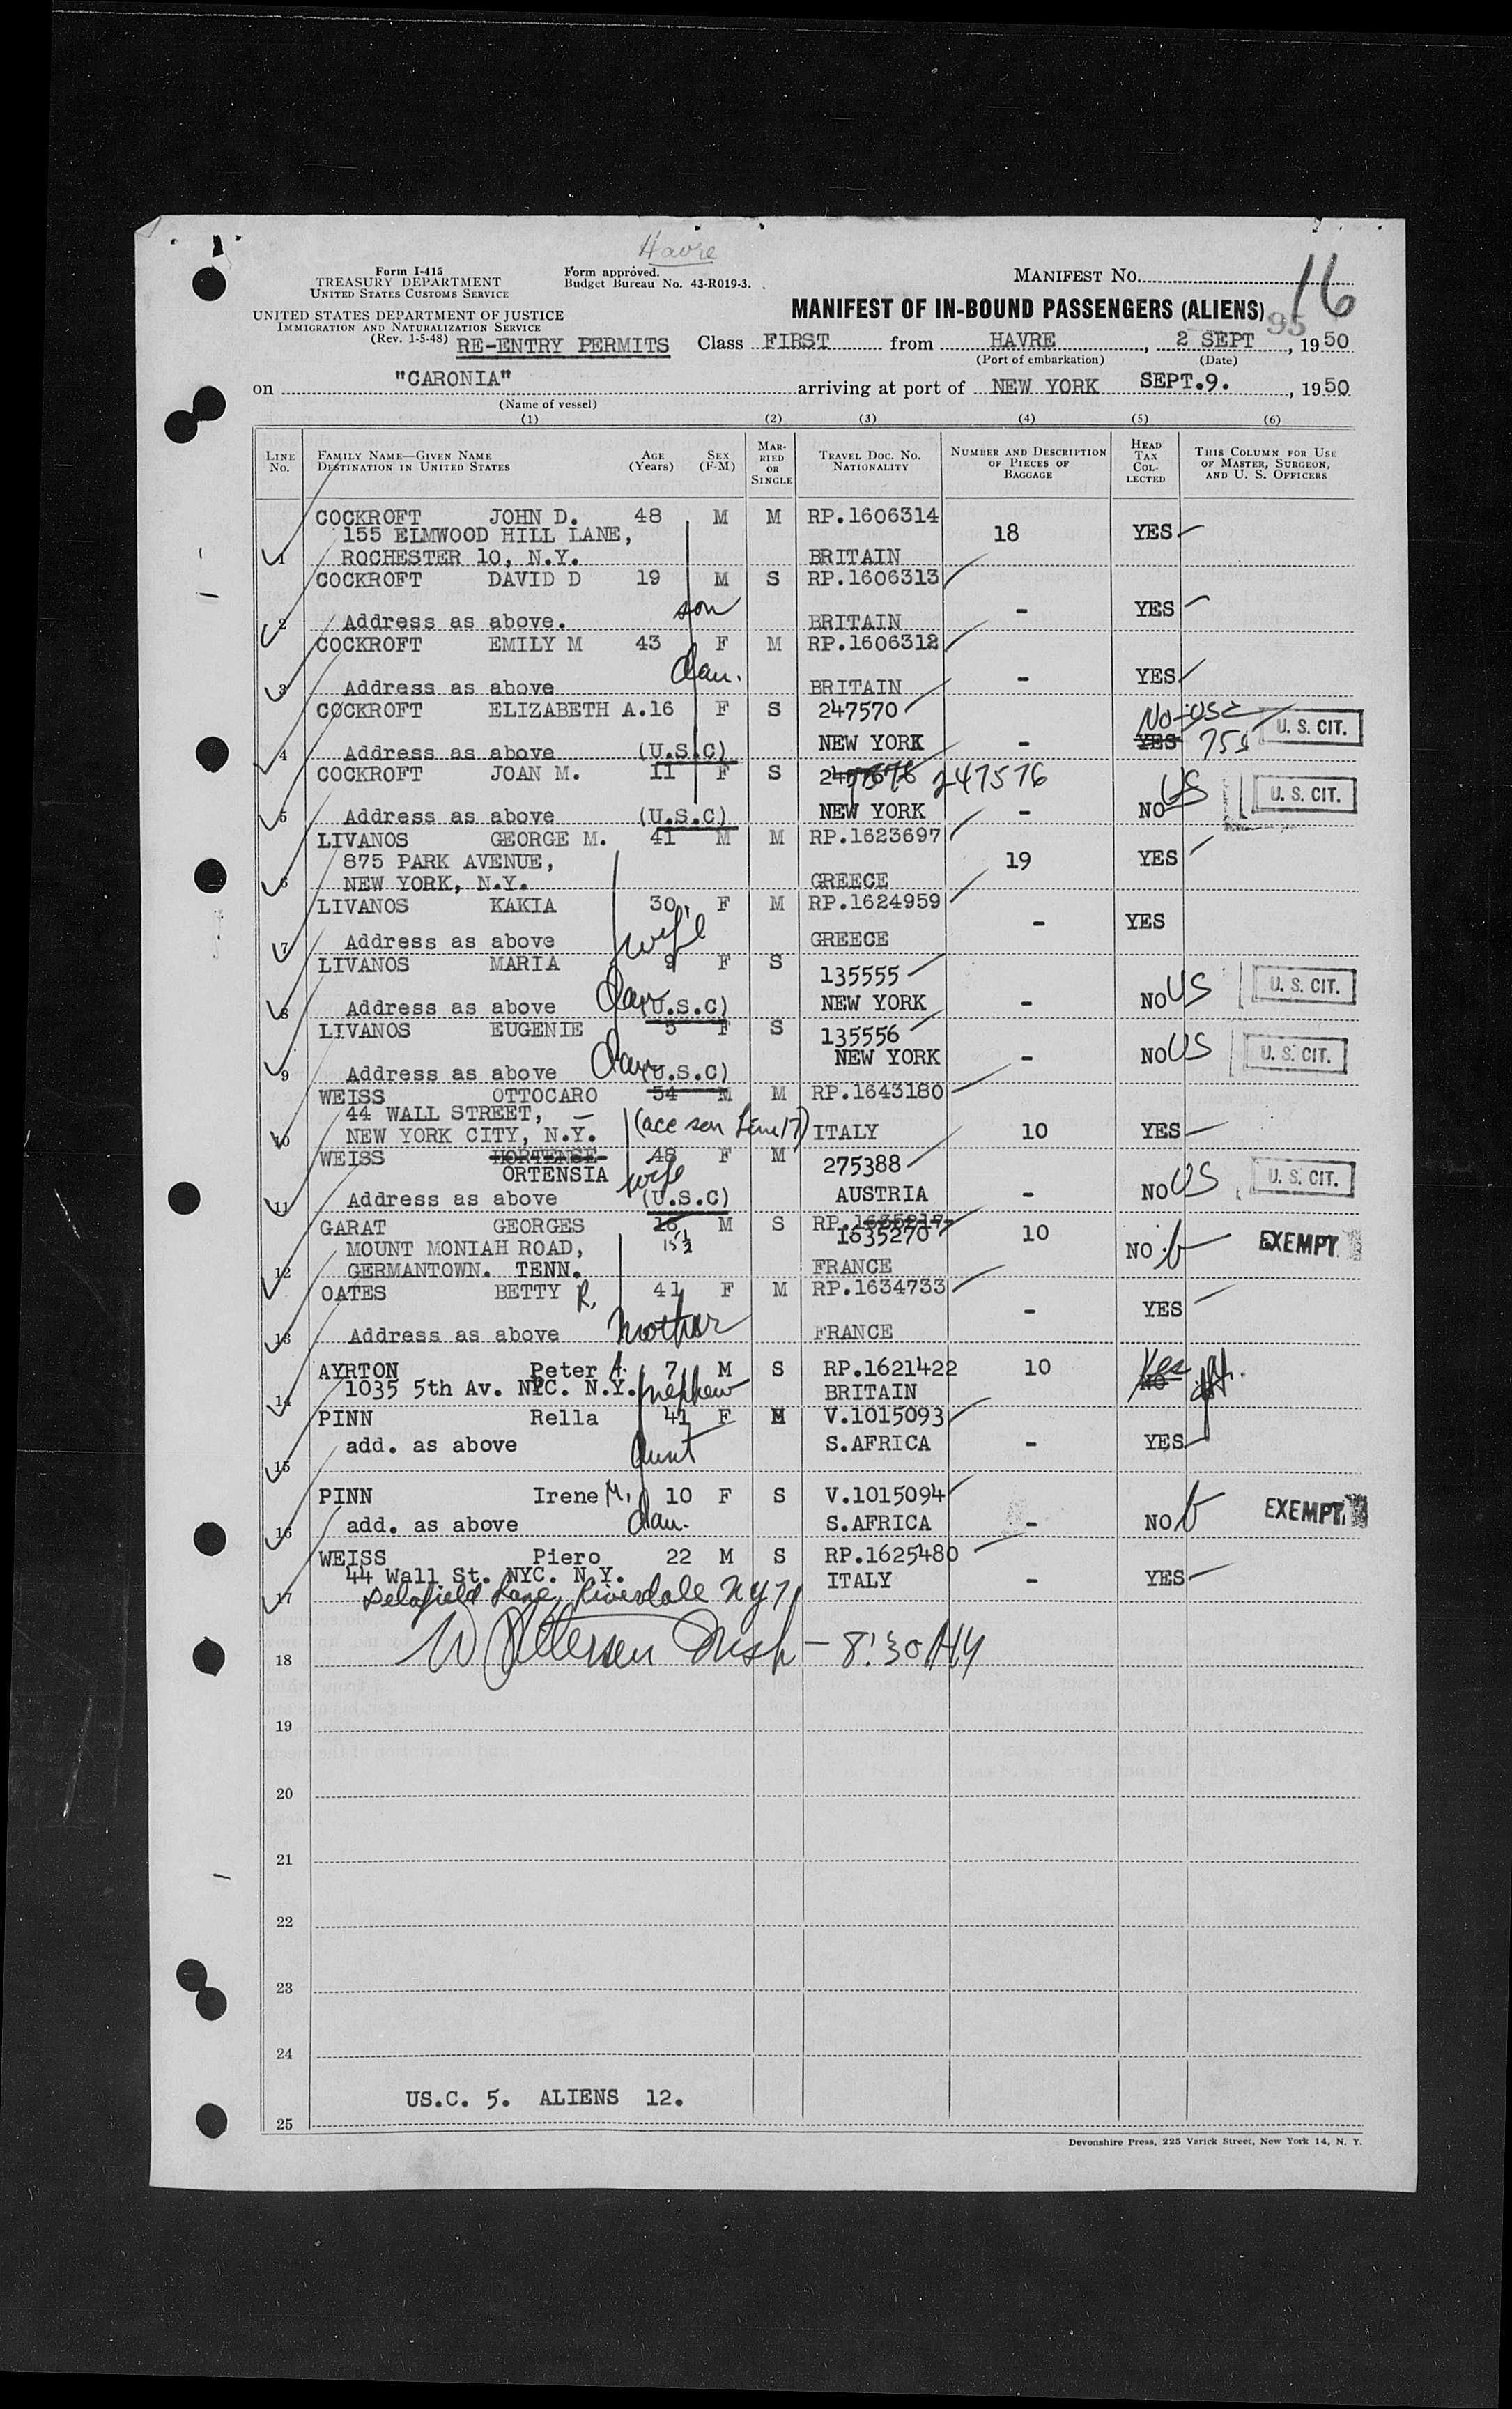 Havre
Form I-415
TREASURY DEPARTMENT
UNITED STATES CUSTOMS SERVICE
Form approved.
Budget Bureau No. 43-R019-3.
MANIFEST NO.
16
UNITED STATES DEPARTMENT OF JUSTICE
IMMIGRATION AND NATURALIZATION SERVICE
(Rev. 1-5-48)
MANIFEST OF IN-BOUND PASSENGERS (ALIENS)
95
RE-ENTRY PERMITS Class FIRST from HAVRE, 2 SEPT, 1950
(Port of embarkation) (Date)
on "CARONIA" arriving at port of NEW YORK SEPT.9., 1950
(Name of vessel)
(1) (2) (3) (4) (5) (6)
LINE NO. FAMILY NAME—GIVEN NAME DESTINATION IN UNITED STATES AGE (Years) SEX (F-M) MARRIED OR SINGLE TRAVEL DOC. NO. NATIONALITY NUMBER AND DESCRIPTION OF PIECES OF BAGGAGE HEAD TAX COLLECTED THIS COLUMN FOR USE OF MASTER, SURGEON, AND U. S. OFFICERS
COCKROFT JOHN D. 48 M M RP.1606314
155 ELMWOOD HILL LANE, 18 YES
1 ROCHESTER 10, N.Y. BRITAIN
COCKROFT DAVID D 19 M S RP.1606313
son - YES
2 Address as above. BRITAIN
COCKROFT EMILY M 43 F M RP.1606312
dau. - YES
3 Address as above BRITAIN
COCKROFT ELIZABETH A. 16 F S 247570 No-USC
4 Address as above (U.S.C) NEW YORK - YES U. S. CIT.
COCKROFT JOAN M. 11 F S 247576
5 Address as above (U.S.C) NEW YORK - NO US U. S. CIT.
LIVANOS GEORGE M. 41 M M RP.1623697
875 PARK AVENUE, 19 YES
6 NEW YORK, N.Y. GREECE
LIVANOS KAKIA 30 F M RP.1624959
wife - YES
7 Address as above GREECE
LIVANOS MARIA 9 F S 135555
8 Address as above dau (U.S.C) NEW YORK - NO US U. S. CIT.
LIVANOS EUGENIE 5 F S 135556
9 Address as above dau (U.S.C) NEW YORK - NO US U. S. CIT.
WEISS OTTOCARO 54 M M RP.1643180
44 WALL STREET, (acc son Line 17)
10 NEW YORK CITY, N.Y. ITALY 10 YES
WEISS HORTENSE 48 F M 275388
ORTENSIA wife
11 Address as above (U.S.C) AUSTRIA - NO US U. S. CIT.
GARAT GEORGES 16 M S RP.1635217
15½ 1635270 10
MOUNT MONIAH ROAD, NO EXEMPT
12 GERMANTOWN. TENN. FRANCE
OATES BETTY R. 41 F M RP.1634733
- YES
13 Address as above mother FRANCE
AYRTON Peter A. 7 M S RP.1621422 10 Yes
14 1035 5th Av. NYC. N.Y. nephew BRITAIN NO
PINN Rella 41 F M V.1015093
add. as above aunt S.AFRICA - YES
15
PINN Irene M. 10 F S V.1015094
16 add. as above dau. S.AFRICA - NO EXEMPT
WEISS Piero 22 M S RP.1625480
44 Wall St. NYC. N.Y. ITALY - YES
17 Delafield Lane, Riverdale NY 71
18 W Insp - 8:30
19
20
21
22
23
24
US.C. 5. ALIENS 12.
25
Devonshire Press, 225 Varick Street, New York 14, N. Y.